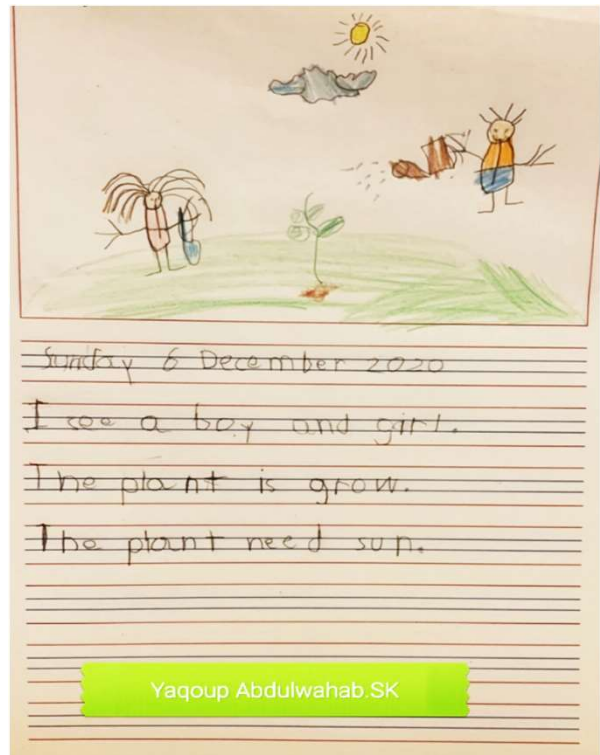 Sunday 6 December 2020
I see a boy and girl.
The plant is grow.
The plant need sun.
Yaqoup Abdulwahab.SK